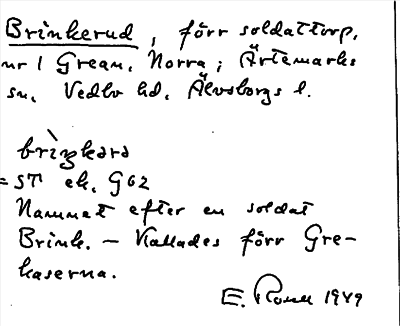 Brinkerud, förr soldattorp,
nr 1 Grean, Norra, i Ärtemarks
sn, Vedbo hd, Älvsborgs l.
brìŋkərə
= ST ek. G62
Namnet efter en soldat
Brink. – Kallades förr Gre-
kaserna.
E. 1949